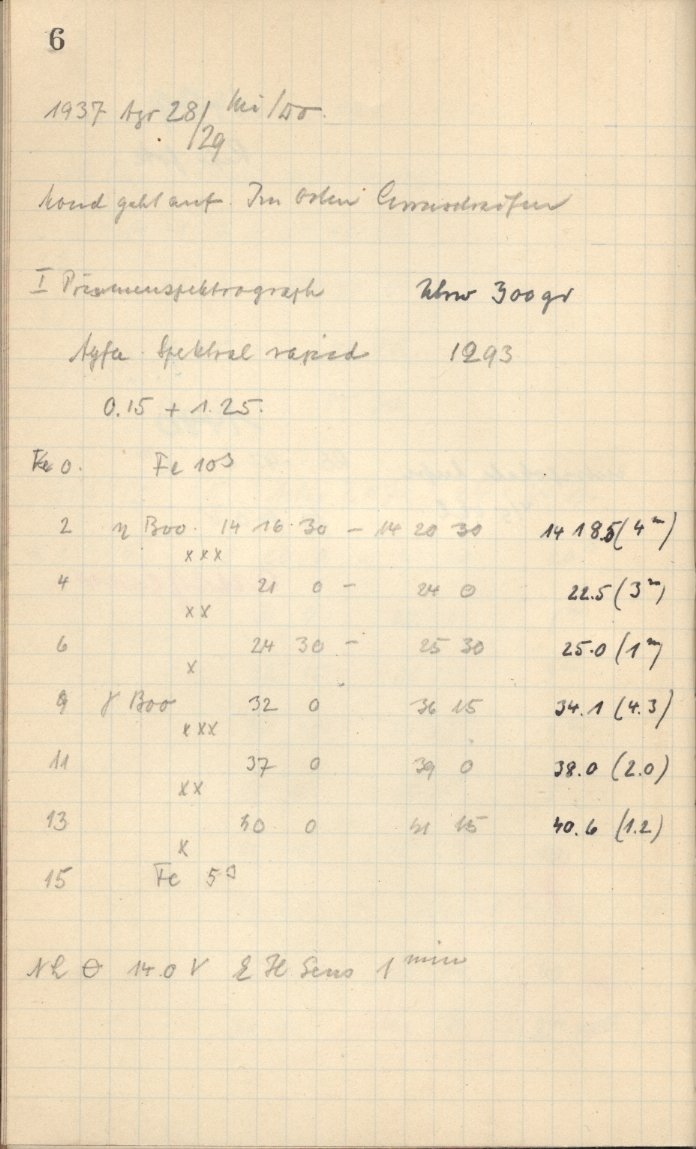 6
1937 Apr 28/29 Mi/Do
Mond geht auf. Im Osten
I Prismenspektrograph Uhr 300 gr
Agfa Spektral rapid 1293
0.15 + 1.25.
0. Fe 10s
2 η Boo. 14 16 30 - 14 20 30 14 18.5 (4m)
xxx
4 21 0 - 24 0 22.5 (3m)
xx
6 24 30 - 25 30 25.0 (1m)
x
9 γ Boo 32 0 36 15 34.1 (4.3)
xxx
11 37 0 39 0 38.0 (2.0)
xx
13 40 0 41 15 40.6 (1.2)
x
15 Fe 5s
14.0 V Sens 1 min